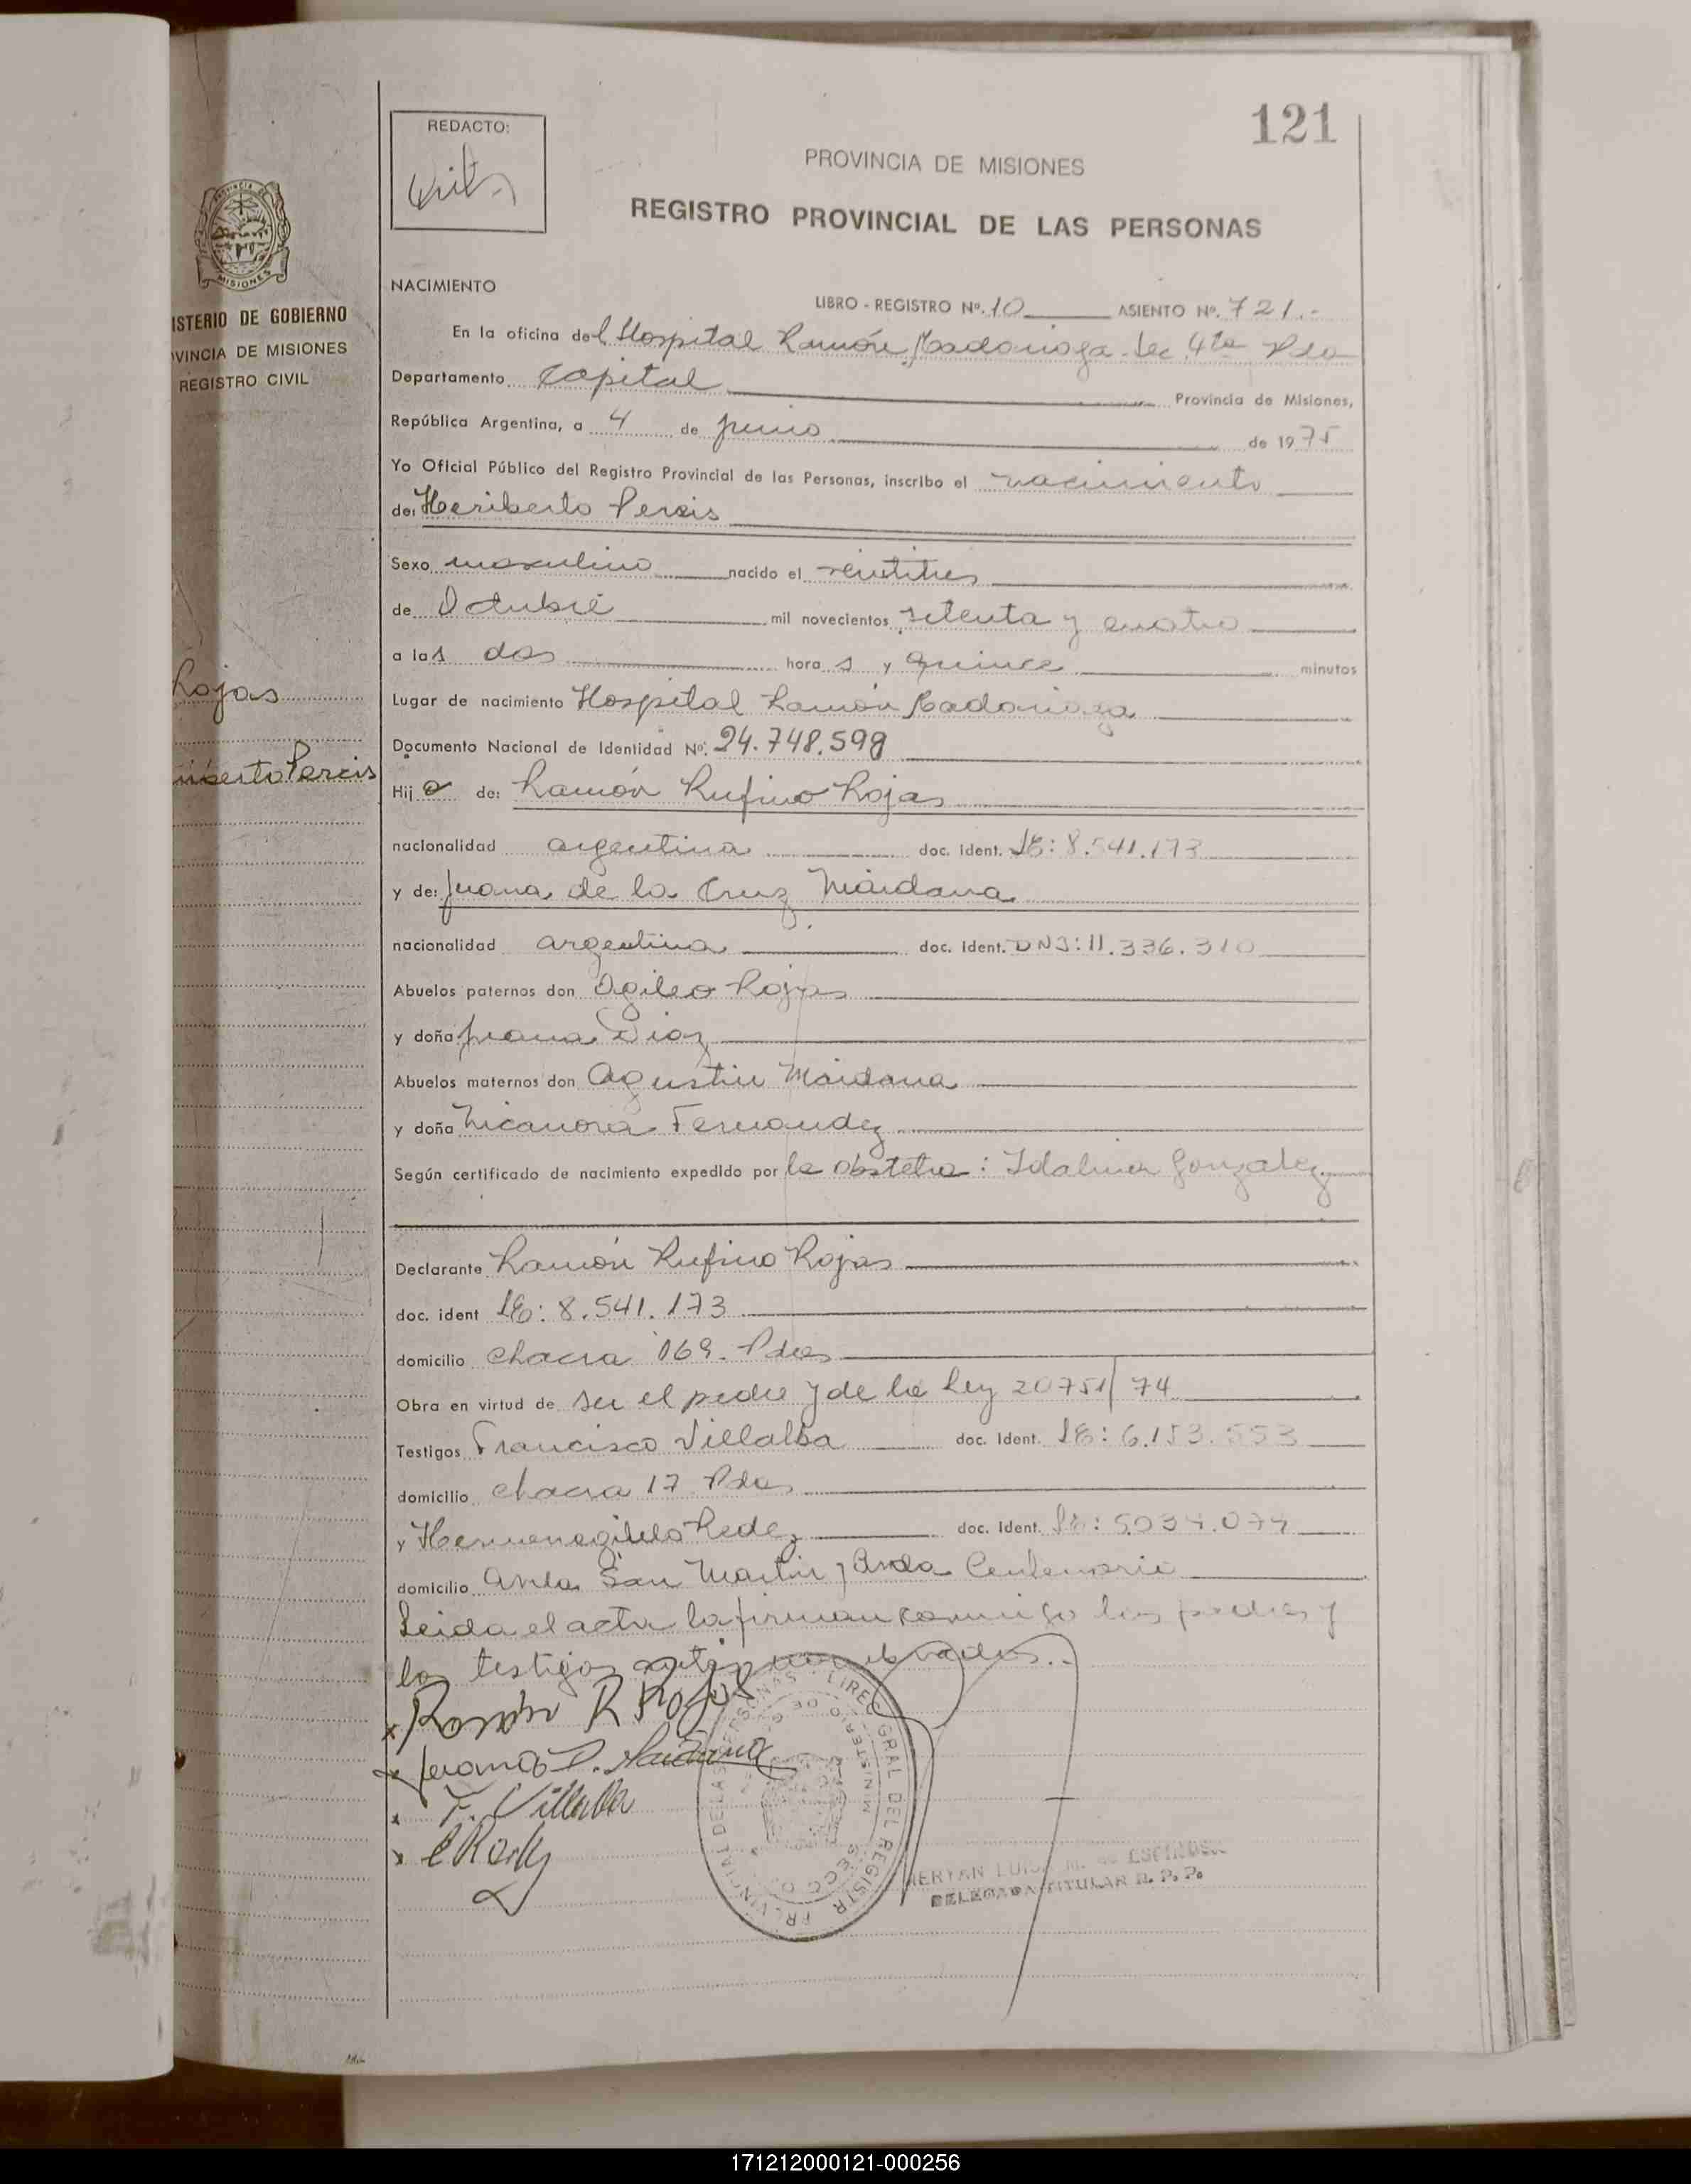 121
REDACTO:
PROVINCIA DE MISIONES
REGISTRO PROVINCIAL DE LAS PERSONAS
PROVINCIA DE
MISIONES
ISTERIO DE GOBIERNO
VINCIA DE MISIONES
REGISTRO CIVIL
Rojas
iberto Percis
NACIMIENTO
LIBRO - REGISTRO Nº. 10 ASIENTO Nº. 721.-
En la oficina del Hospital Ramón Madariaga Sec 4ta Pdas
Departamento Capital Provincia de Misiones,
República Argentina, a 4 de junio de 1975
Yo Oficial Público del Registro Provincial de las Personas, inscribo el nacimiento
de: Heriberto Percis
Sexo masculino nacido el veintitres
de Octubre mil novecientos setenta y cuatro
a las dos hora s y quince minutos
Lugar de nacimiento Hospital Ramón Madariaga
Documento Nacional de Identidad Nº. 24.748.598
Hij o de: Ramón Rufino Rojas
nacionalidad argentina doc. ident. LE: 8.541.173
y de: Juana de la Cruz Maidana
nacionalidad argentina doc. ident. DNI: 11.336.310
Abuelos paternos don Rojas
y doña Juana Diaz
Abuelos maternos don Agustin Maidana
y doña Nicanora Fernandez
Según certificado de nacimiento expedido por la obstetra: Idalina Gonzalez
Declarante Ramón Rufino Rojas
doc. ident LE: 8.541.173
domicilio chacra 069. Pdas
Obra en virtud de ser el padre y de la Ley 20751/74
Testigos Francisco Villalba doc. Ident. LE: 6.153.553
domicilio chacra 17 Pdas
y Hermenegildo doc. Ident. LE: 5034.074
domicilio Avda San Martin y Avda Centenario
Leida el acta la firman conmigo los padres y
los testigos antes nombrados.-
x Ramón R Rojas
x Juana D. Maidana
x F. Villalba
x
DELEGADA TITULAR R. P. P.
171212000121-000256